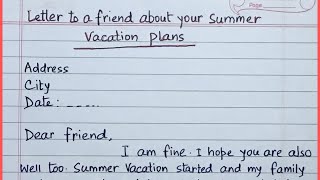 Page
Letter to a friend about your Summer
Vacation plans
Address
City
Date: -----
Dear friend,
I am fine. I hope you are also
well too. Summer Vacation started and my family